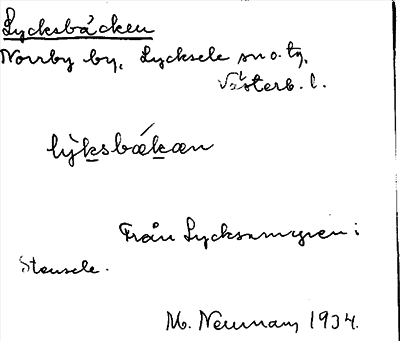 Lycksbäcken
Norrby by, Lycksele sn o. tg,
Västerb. l.
lỳksbækæn
Från Lycksamyren i
Stensele.
M. Neuman, 1934.